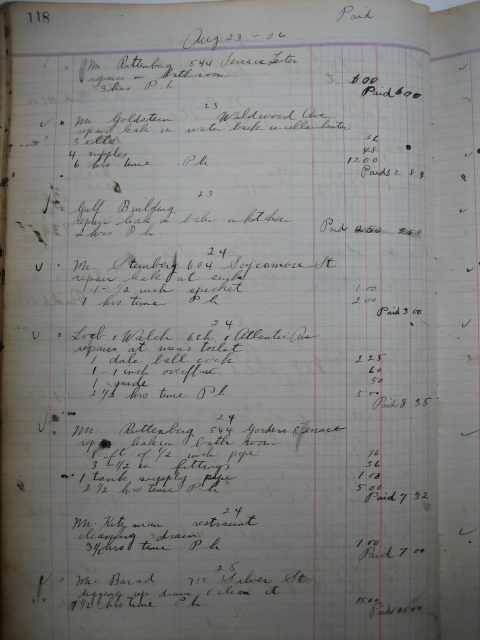 118
Paid
Aug 23 - 26
Mr Ruttenberg 544 Terrace
repairs in Bathroom
3 hrs P h 6 00
Paid 6 00
23
Mr Goldstein Wildwood Ave
repair leak in water back in cellar heater
3 ells 36
4 nipples 48
6 hrs time P h 12 00
Paid 12 84
23
Gulf Building
repair leak in boiler in kitchen
2 hrs P h Paid
24
Mr Steinberg 604 Sycamore St
repair leak at sink
1 - 1/2 inch spicket 1 00
1 hrs time P h 2 00
Paid 3 00
24
Loeb & Walch 6th & Atlantic Ave
repairs at mens toilet
ball cock 2 25
1 - 1 inch overflow 60
1 guide 50
2 1/2 hrs time P h 5 00
Paid 8 35
24
Mr Ruttenberg 544 Gordens Terrace
repair leak in bath room
8 ft of 1/2 inch pipe
3 - 1/2 in fittings 36
1 tank supply pipe 1
2 1/2 hrs time P h 5 00
Paid 7 32
24
Mr. Kitzman restraunt
cleaning drain
3 1/2 hrs time P h
Paid 7 00
25
Mr Barad 712 Silver St
digging up drain & clean it
7 1/2 hrs time P h 15 00
Paid 15 00